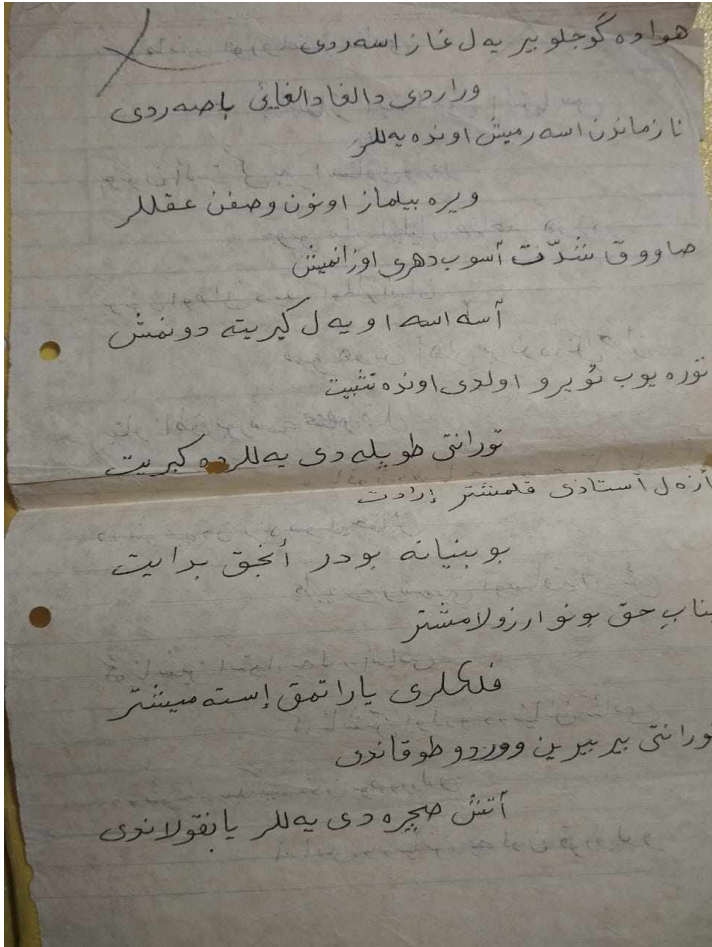 هواده گوجلو بیر یه ل غاز اسه ردی
وراردی دالغا دالغائی باصه ردی
نا زماندن اسه رمیش اونده یه للر
ویره بیلماز اونون وصفن عقللر
صاووق شدّت آسوب دهری اوزانمیش
آسه اسه او یه ل کبریته دونمش
توره یوب تویرو اولدی اونده تثبیت
تورانتی طوپله دی یه للرده کبریت
أزه ل أستاذی قلمشتر إرادت
بو بنیانه بودر أنجق بدایت
جناب حق بونو ارزولامشتر
فلکلری یاراتمق إسته میشتر
تورانتی بیر بیرین ووردو طوقاندی
أتش صچره دی یه للر یانقولاندی